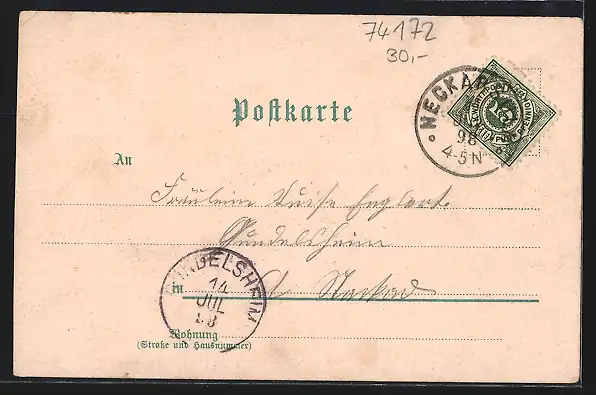 74172
30,-
Postkarte
NECKAR
98
4-5N
An
Fräulein Luise Englert
Gundelsheim
GUNDELSHEIM
14
JUL
98
in
a Neckar
Wohnung
(Straße und Hausnummer)